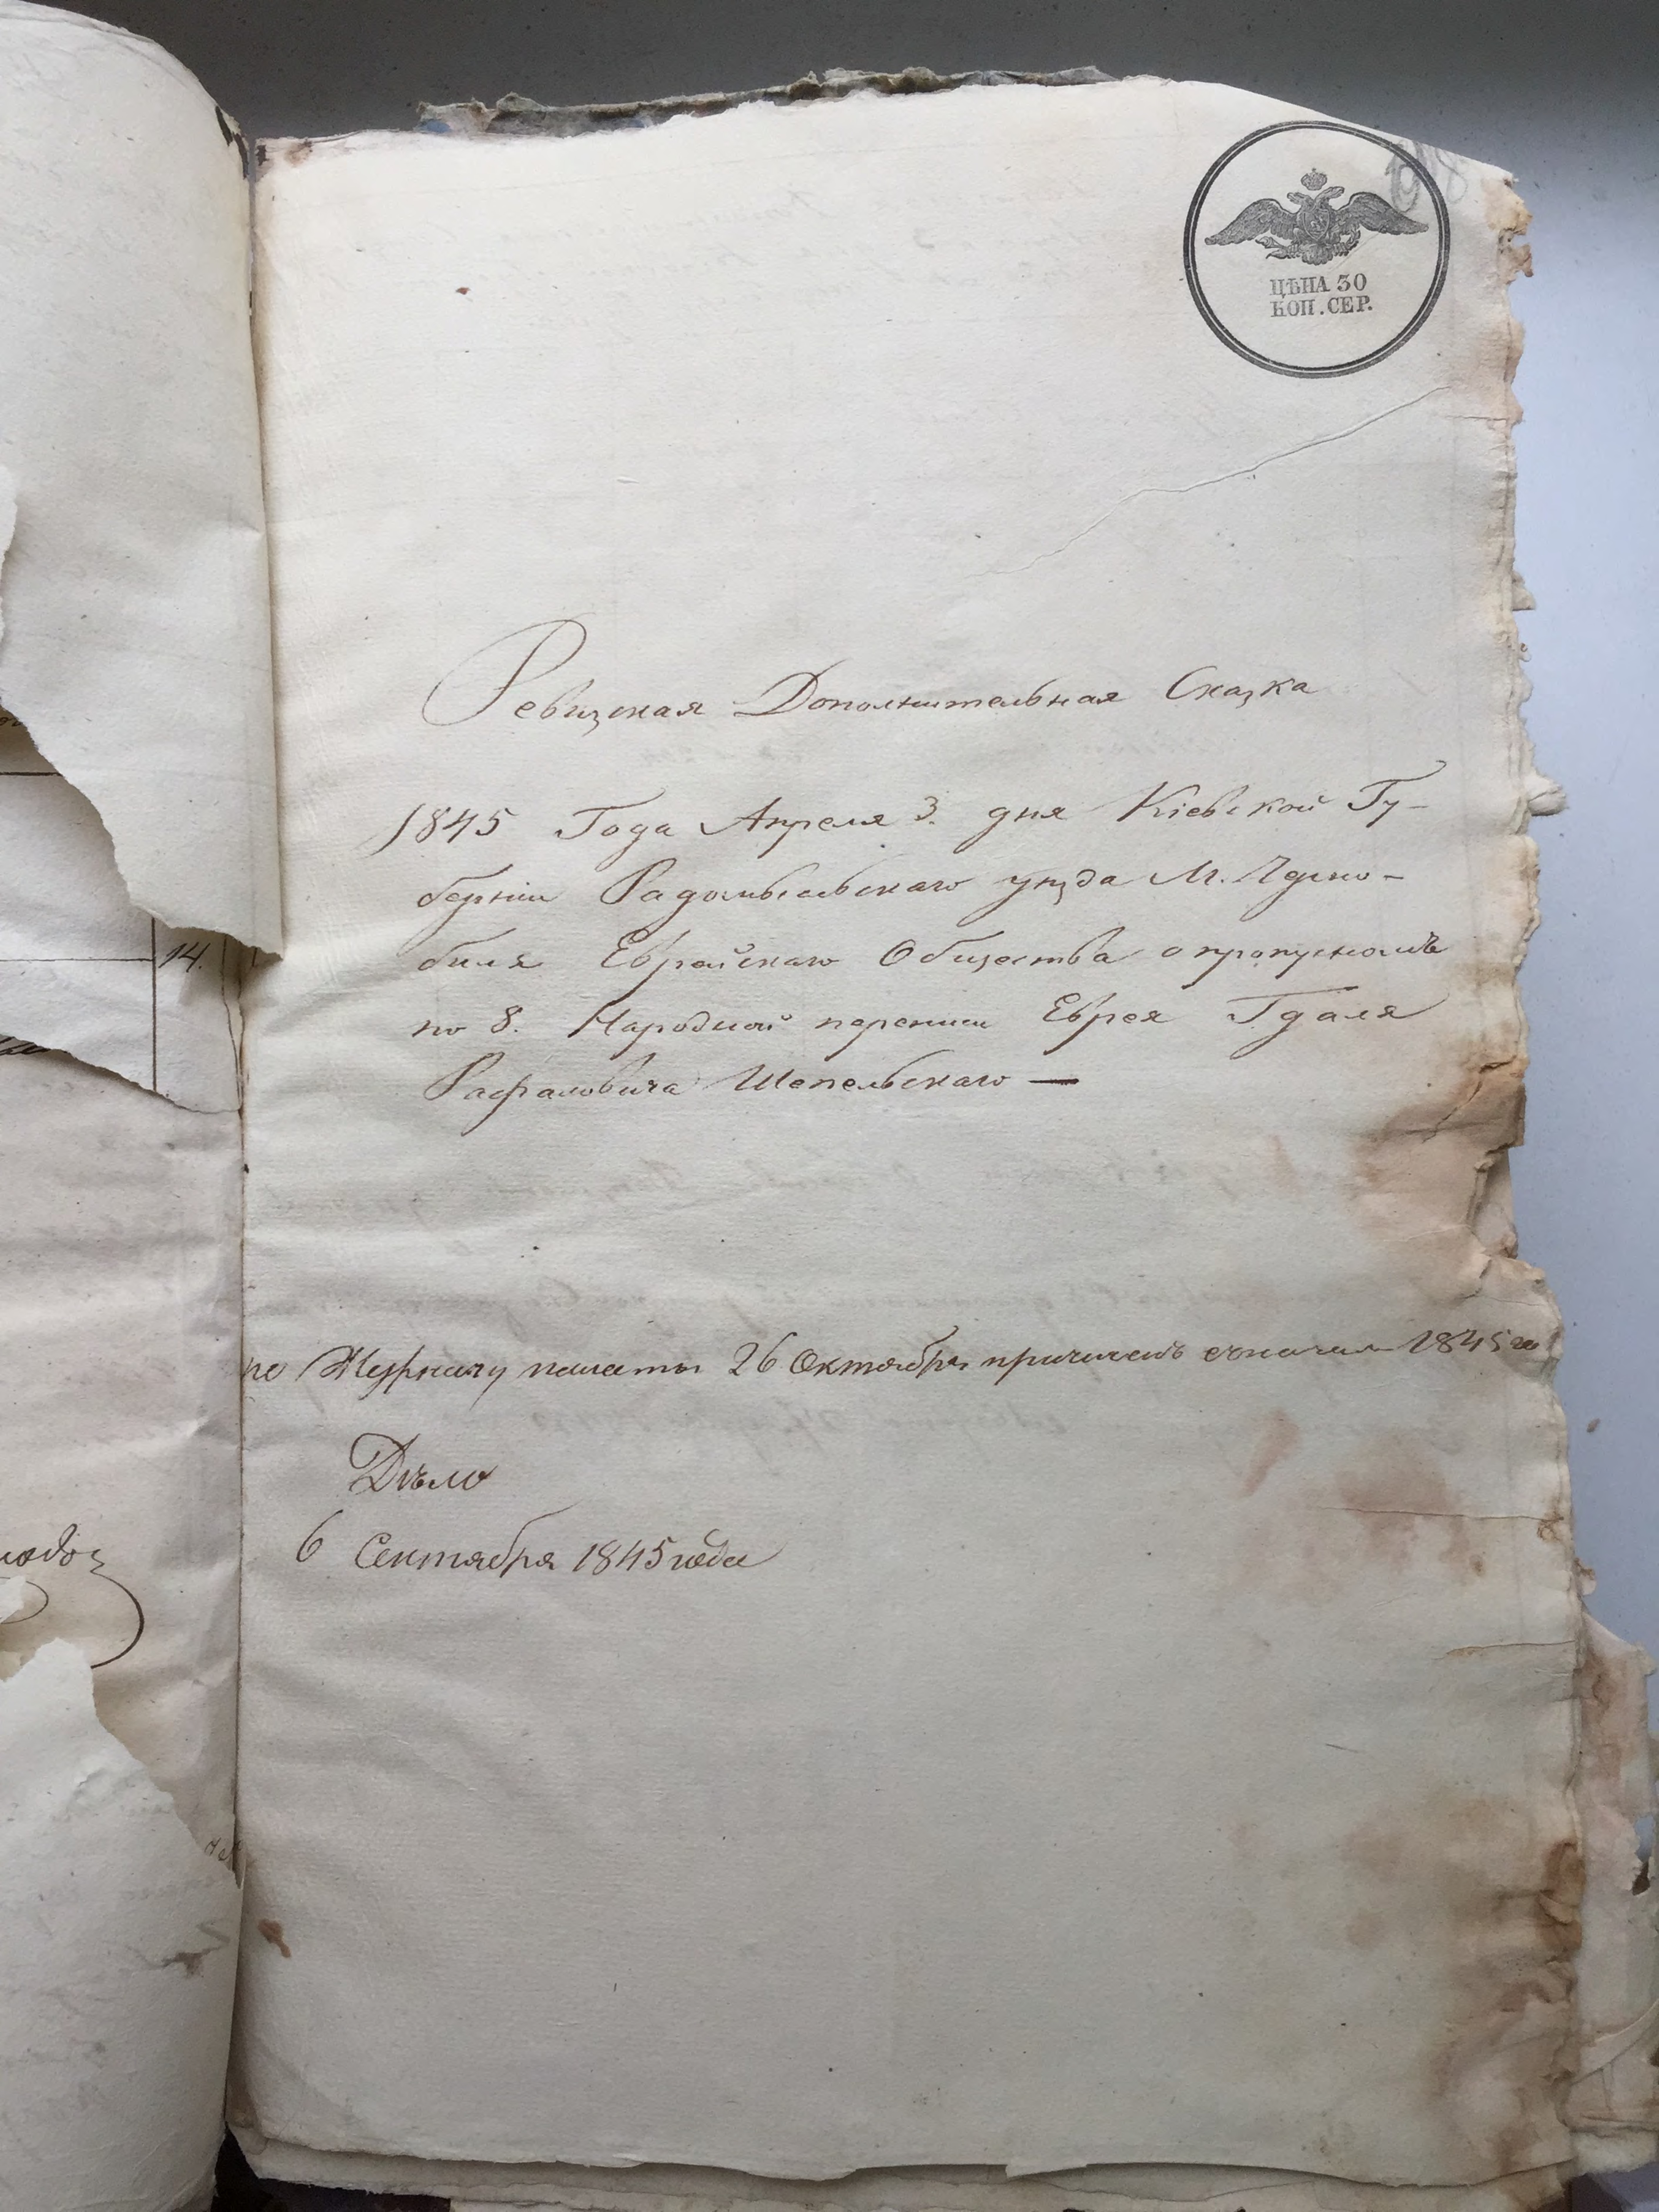 ЦѢНА 30
КОП. СЕР.
Ревизская Дополнительная Сказка
1845 Года Апреля 3. дня Кіевской Гу-
берніи Радомысльскаго уѣзда М. Черно-
быля Еврейскаго Общества о пропускномъ
по 8. Народной переписи Еврея Гдаля
Рафаловича Шепельскаго —
14.
по Журналу палаты 26 Октября причисленъ сначала 1845 го
Дѣло
6 Сентября 1845 года